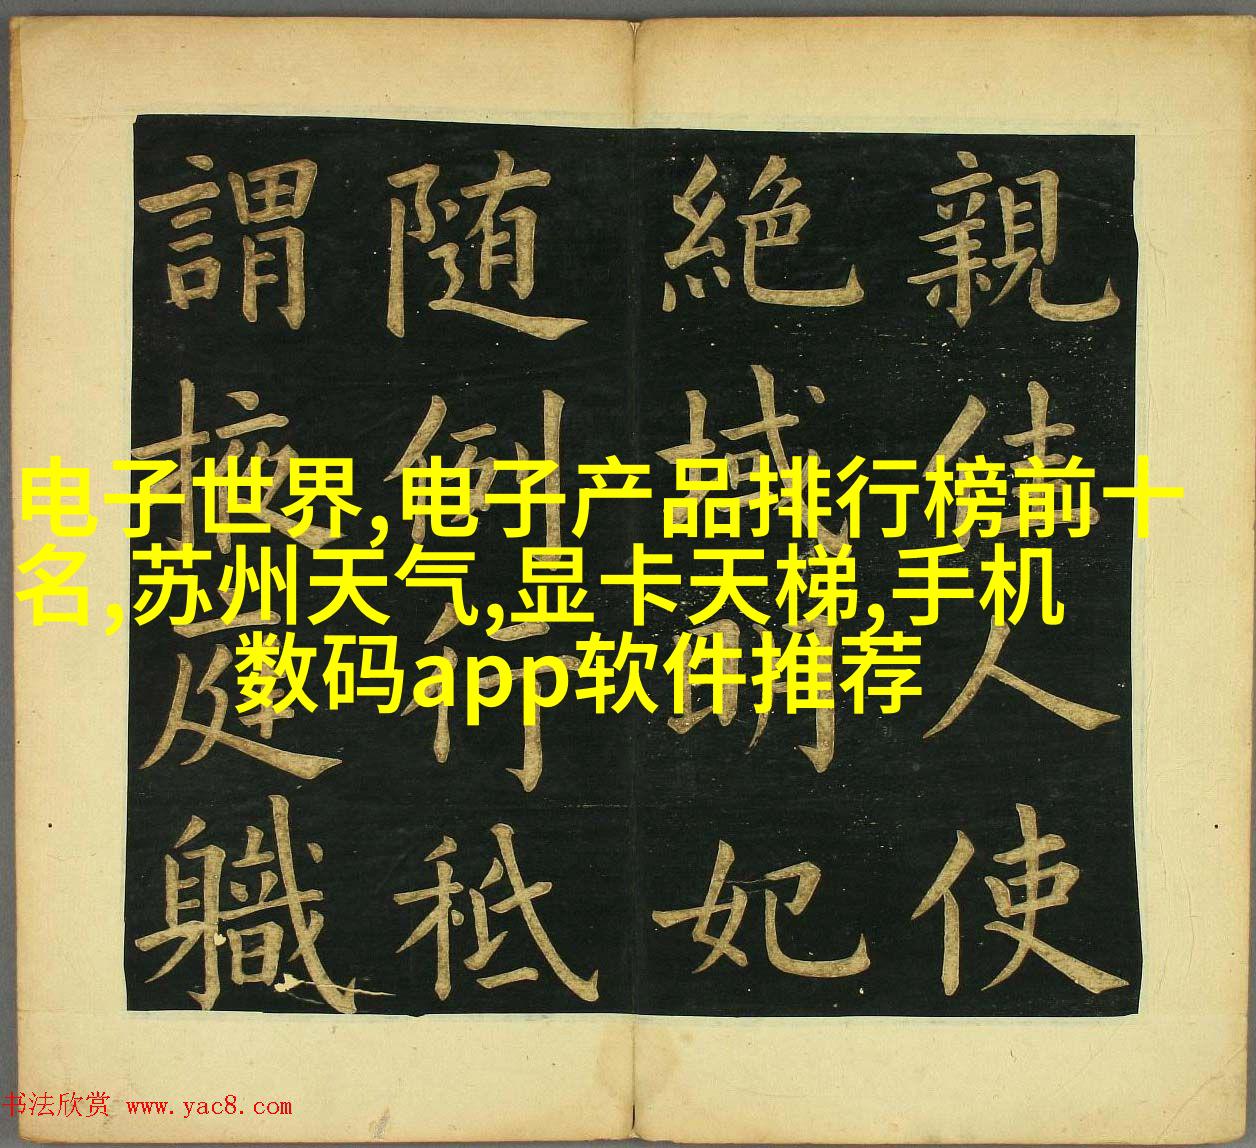 親佳人使
絶域明妃
随例行秪
謂掖庭軄
电子世界,电子产品排行榜前十
名,苏州天气,显卡天梯,手机
数码app软件推荐
书法欣赏 www.yac8.com